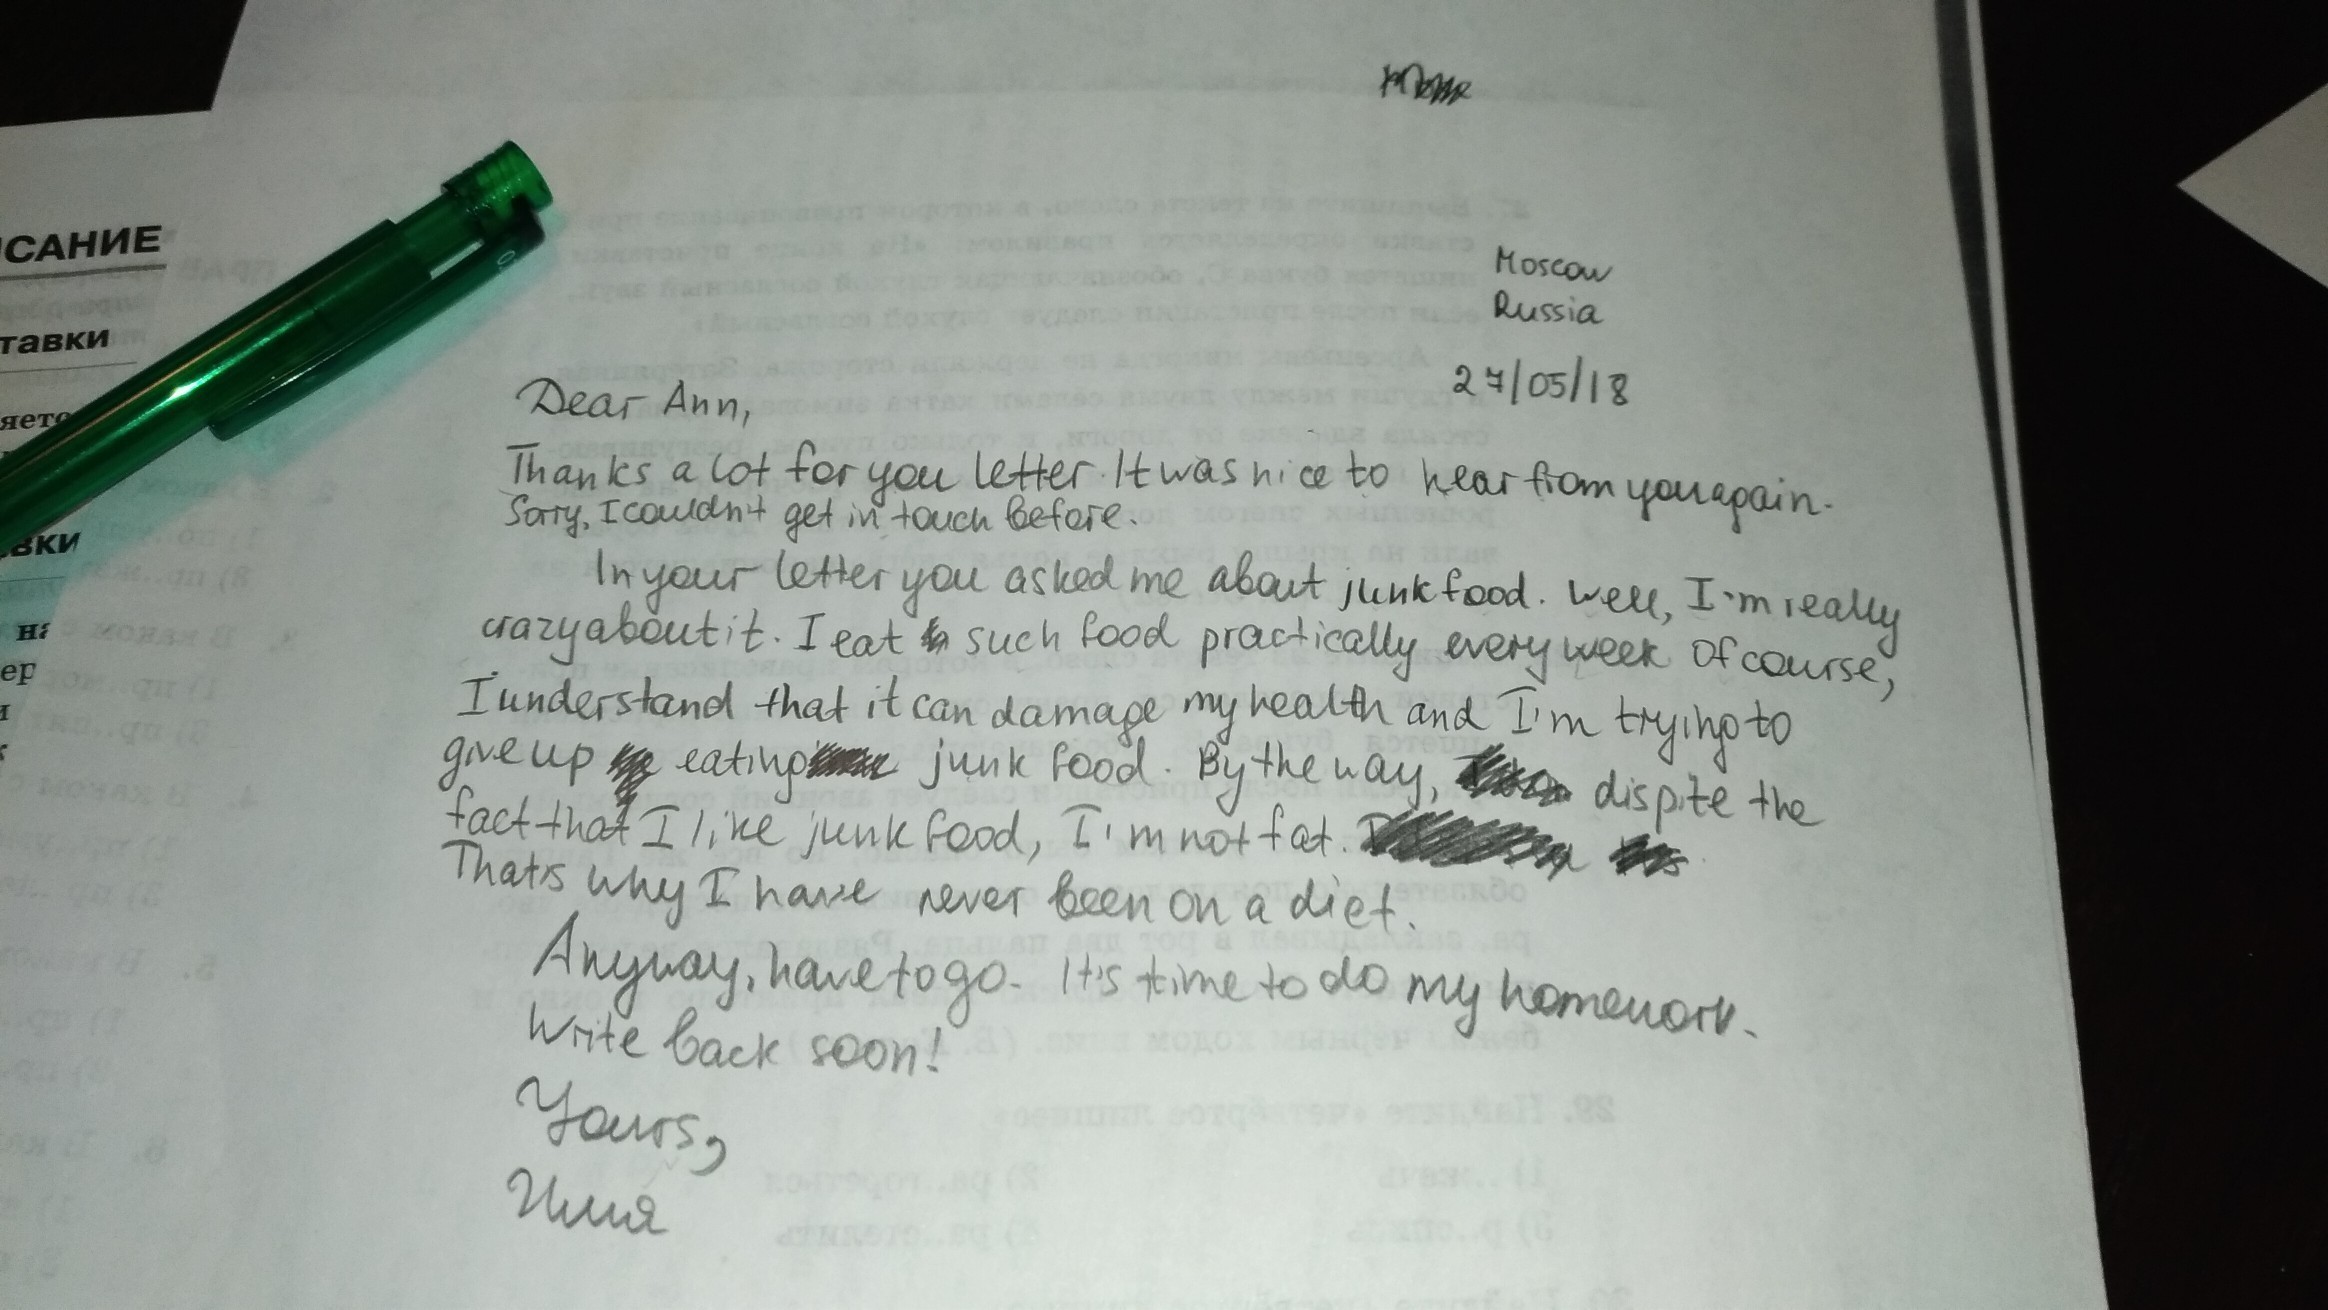 Moscow
Russia
27/05/18
Dear Ann,
Thanks a lot for you letter. It was nice to hear from you again.
Sorry, I couldn't get in touch before.
In your letter you asked me about junk food. Well, I'm really
crazy about it. I eat such food practically every week Of course,
I understand that it can damage my health and I'm trying to
give up eating junk food. By the way, dispite the
fact that I like junk food, I'm not fat.
That's why I have never been on a diet.
Anyway, have to go. It's time to do my homework.
Write back soon!
Yours,
Имя
ИСАНИЕ
тавки
яетс
вки
ер